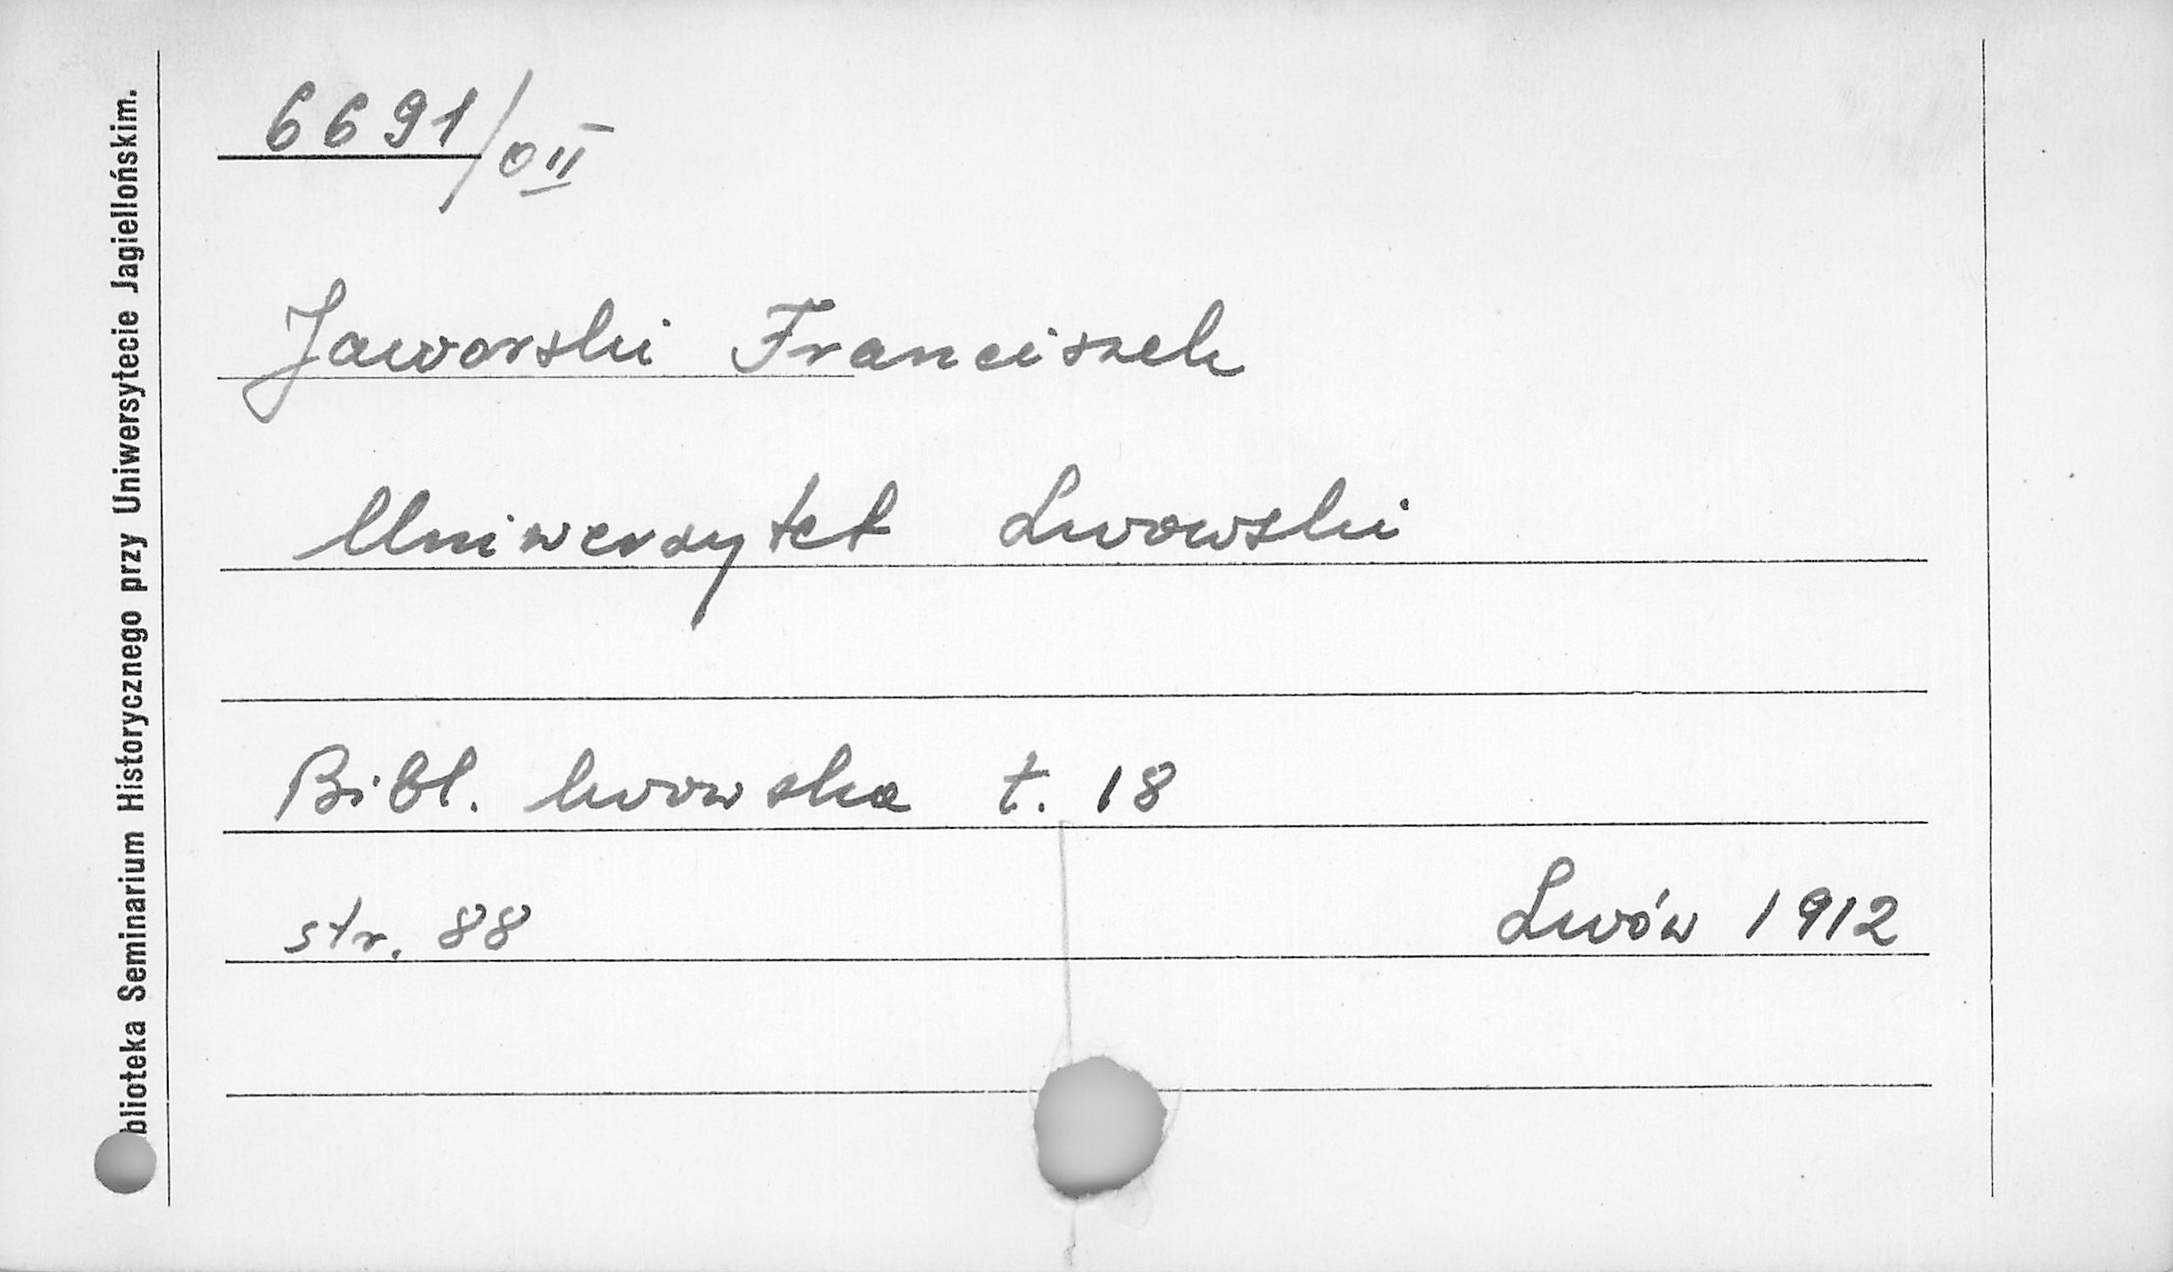 6691/O II
Jaworski Franciszek
Uniwersytet Lwowski
Bibl. lwowska t. 18
str. 88
Lwów 1912
blioteka Seminarium Historycznego przy Uniwersytecie Jagiellońskim.